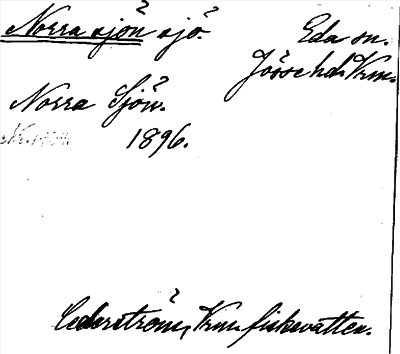 Norra sjön sjö.
Eda sn.
Jösse hd. Vrm.
Norra Sjön.
1896.
Cederström, Vrm. fiskevatten.